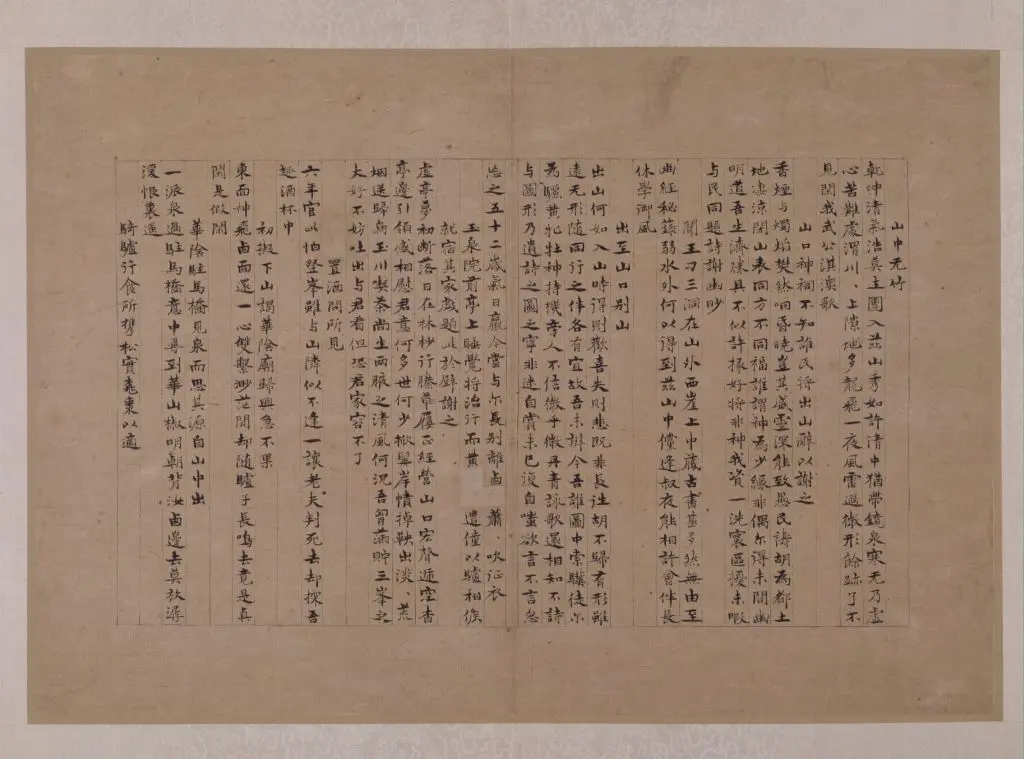 山中无竹
乾坤清氣浩莫主圖入茲山秀如許清中猶帶鏡泉寒无乃虛
心苦難處渭川〻上隙地多龍飛一夜風雷過微形餘跡了不
見閑我武公淇澳歌
山口神祠不知誰氏將出山辭以謝之
香煙与燭焰樊牀咽昏曉豈其盛靈深能致愚民禱胡為都土
地凄涼閑山表同方不同福誰謂神為少緣非偶尓得未開幽
明道吾生濟勝具不似許掾好將非神我資一洗寰區擾未暇
与民同題詩謝幽眇
聞王刁三洞在山外西崖上中藏古書甚多然無由至
幽經秘籙弱水外何以得到茲山中儻逢叔夜能相許會伴長
休學御風
出至山口别山
出山何如入山時得則歡喜失則悲既非長往胡不歸有形雖
遠无形隨同行之伴各有宜故吾未辯今吾誰圖中索驥徒尓
為驪黄牝牡神持機旁人不信微乎微丹青詠歌還相知不詩
与圖形乃遺詩之圖之寧非迷自賞未已復自嗤欲言不言怱
怱之五十二歲氣日羸今當与尓長别離鹵 蕭〻吹征衣
玉泉院前亭上睡覺將治行而黄 遣僮以驢相候
就宿其家戱題此於壁謝之
虛亭夢初断落日在林杪行縢草屨正經營山口宏聲逓空杳
亭邊引領感相慰君意何多世何少掀輿岸幘掉鞅出淡〻荒
烟送歸鳥玉川喫茶尚生两腋之清風何況吾胷滿貯三峯之
大好不妨吐出与君看但恐君家容不了
置酒問所見
六年官此怕登峯雖与山隣似不逢一讓老夫判死去却探吾
趣酒杯中
初擬下山謁華陰廟歸興急不果
東而神飛鹵而還一心雙繫渺茫間却随驢子長鳴去竟是真
閑是似閑
華陰駐馬橋見泉而思其源自山中出
一派泉過駐馬橋意中尋到華山椒明朝背汝鹵邊去莫放潺
湲恨裏遥
騎驢行食所携松實亀棗以適